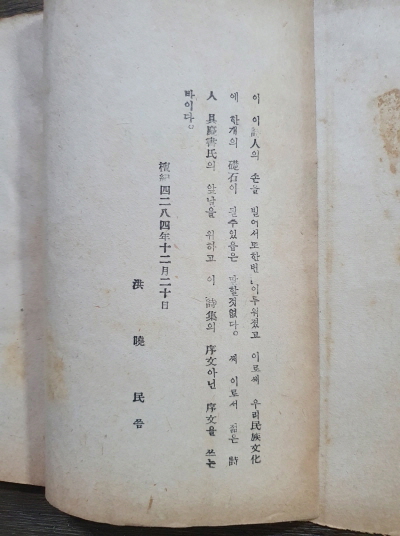 이 이 詩人의 손을 빌어서 또한번 이루워졌고 이로써 우리 民族文化
에 한개의 礎石이 될수있음은 말할것없다。 이로서 젊은 詩
人 具慶書氏의 앞날을 위하고 이 詩集의 序文아닌 序文을 쓰는
바이다。
檀紀四二八四年十二月二十日
洪 曉 民 씀